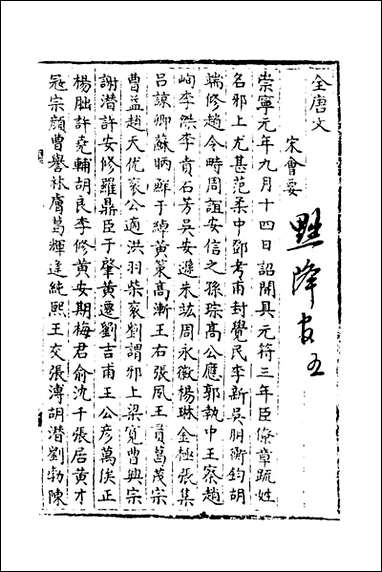 全唐文
宋會要
黜降官五
崇寧元年九月十四日詔開具元符三年臣僚章疏姓
名邪上尤甚范柔中鄧考甫封覺民李新吳朋衡鈞胡
端修趙令時周誼安信之孫琮高公應郭執中王察趙
峋李洪李賁石芳吳安遜朱紘周永徽楊琳金極張集
呂諒卿蘇昞鮮于綽黃策高漸王右張夙王貢葛茂宗
曹益趙天佐家公適洪羽柴家劉謂邪上梁寬曹興宗
謝潛許安修羅鼎臣于肇黃遷劉吉甫王公彥萬俟正
楊朏許堯輔胡良李修黃安期梅君俞沈千張居黃才
冠宗顏曹譽林膚葛輝逢純熙王交張溥胡潛劉勃陳